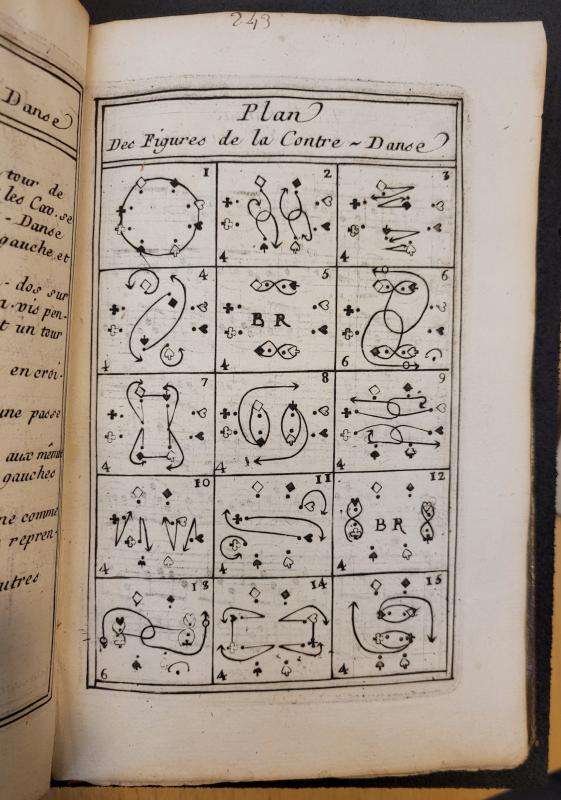 243
Danse
tour de
les Cav. se
- Danse
gauche et
- dos sur
a-vis pen-
t un tour
en croi-
une passe
aux mêmes
gauches
né comme
repren-
utres
Plan
Des Figures de la Contre ~ Danse
1 2 3
4 4
4 5 6
B R
4 4 6
7 8 9
4 4 4
10 11 12
B R
4 4 4
13 14 15
6 4 4